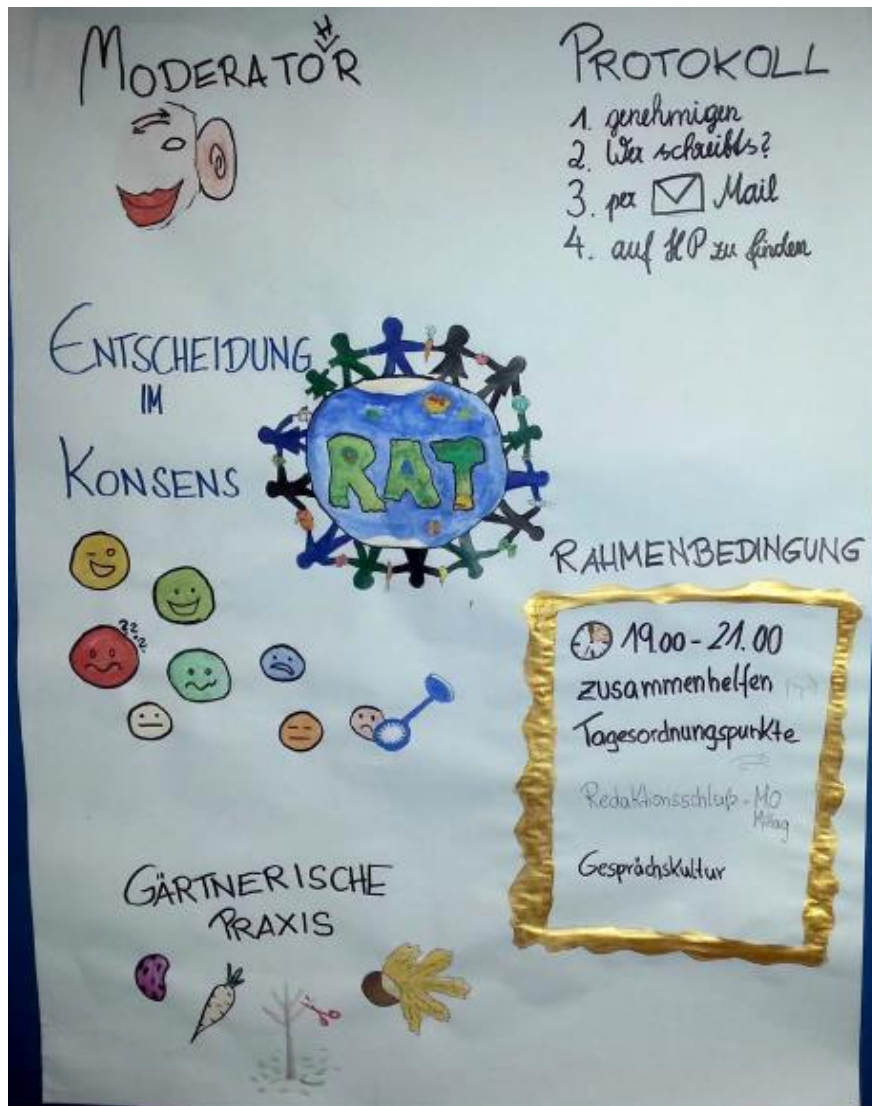 MODERATOR
H
PROTOKOLL
1. genehmigen
2. Wer schreibts?
3. per Mail
4. auf HP zu finden
ENTSCHEIDUNG
IM
KONSENS
RAT
RAHMENBEDINGUNG
19.00-21.00
zusammenhelfen
Tagesordnungspunkte
Redaktionsschluß-MO
Mittag
Gesprächskultur
GÄRTNERISCHE
PRAXIS